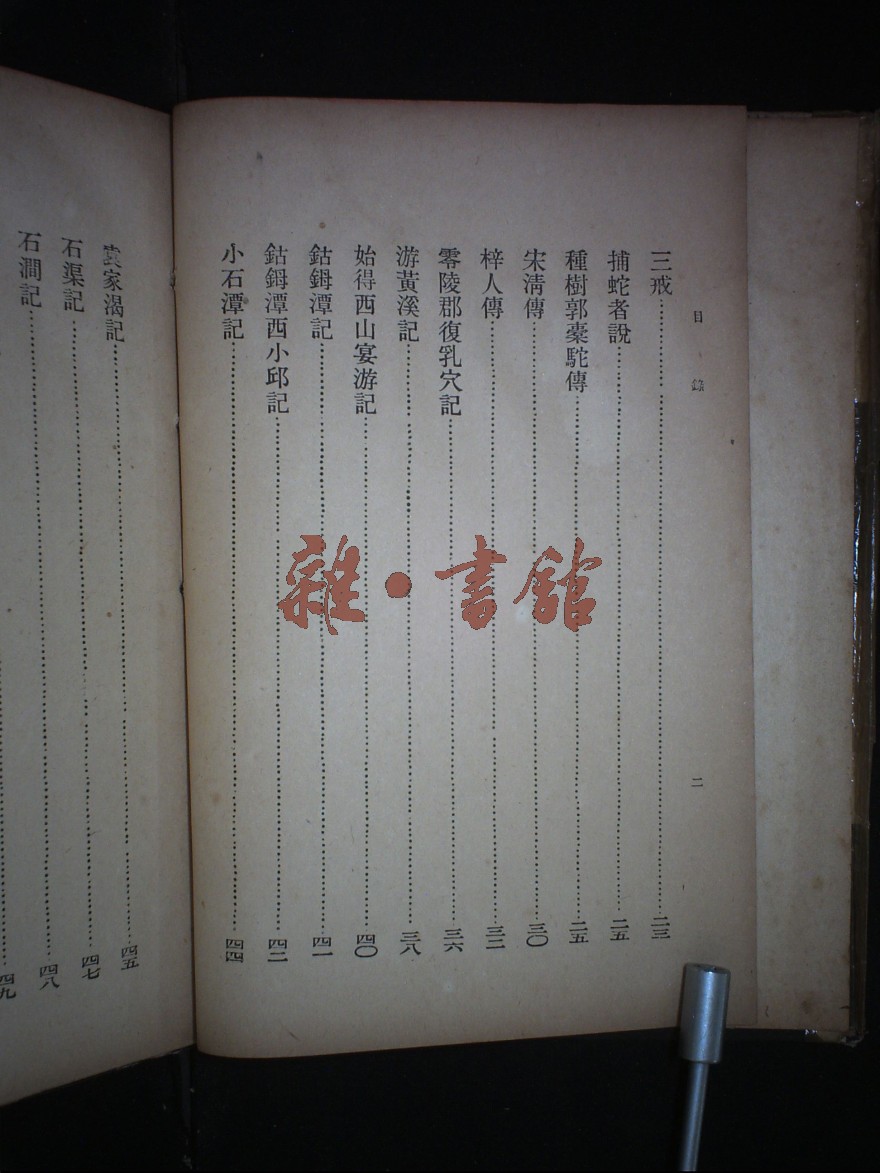 目錄
二
三戒……二三
捕蛇者說……二五
種樹郭橐駝傳……二五
宋淸傳……三〇
梓人傳……三二
零陵郡復乳穴記……三六
游黃溪記……三八
始得西山宴游記……四〇
鈷鉧潭記……四一
鈷鉧潭西小邱記……四二
小石潭記……四四
袁家渴記……四五
石渠記……四七
石澗記……四八
四九
雜·書館